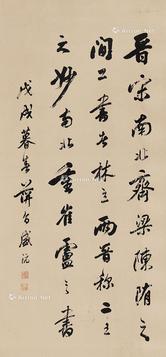 晉宋南北齊梁陳隋之
間工書者林立兩晉称二王
之妙南北重崔盧之書
戊戌暮春萍旨盛沅